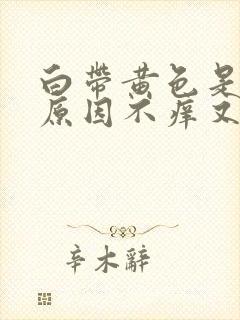 白帶黄色是
原因不痒又
辛木辭